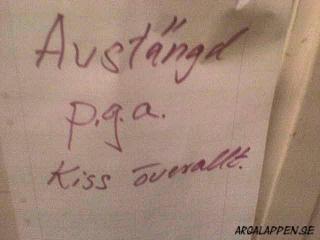 Avstängd
p.g.a.
Kiss överallt.
ARGALAPPEN.SE